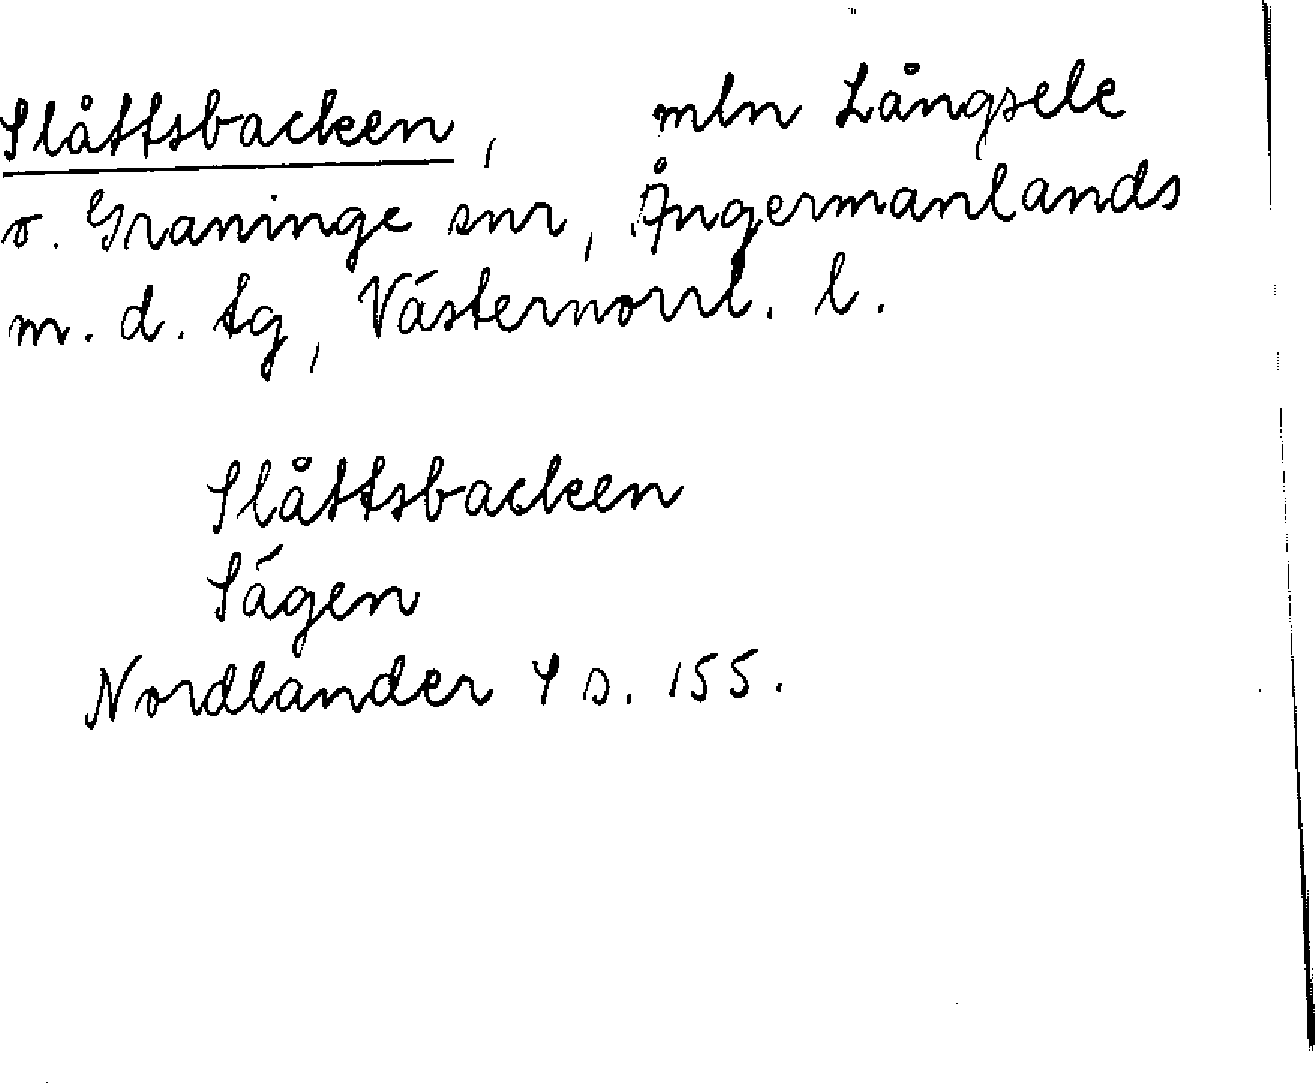 Slåttsbacken, mln Långsele
o. Graninge snr, Ångermanlands
m. d. tg, Västernorrl. l.
Slåttsbacken
Sägen
Nordlander 4 s. 155.